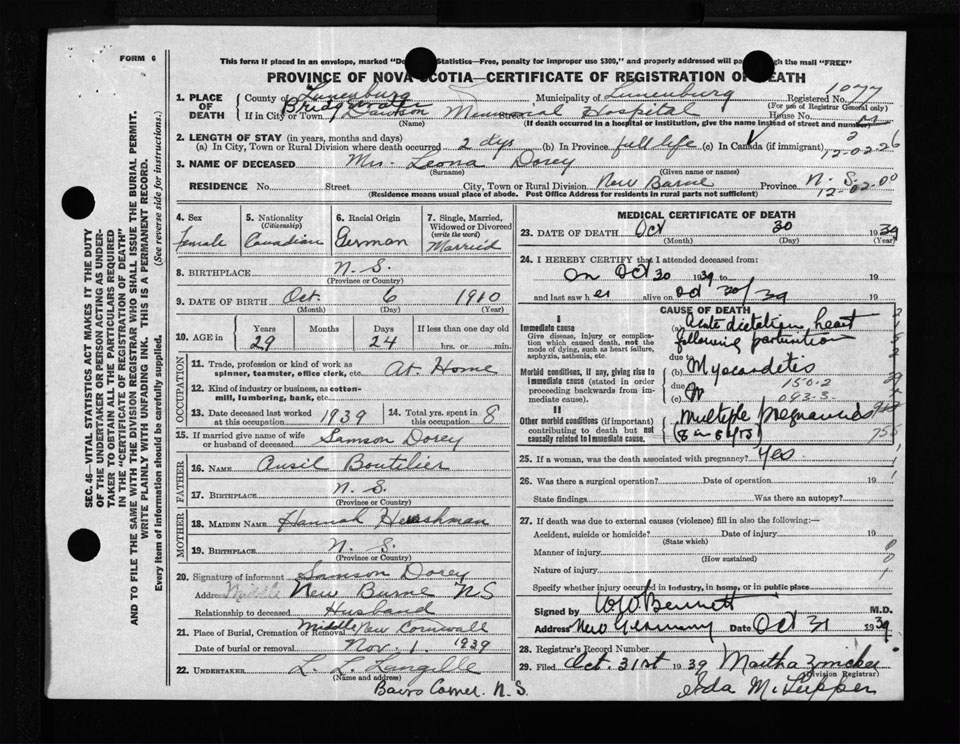 FORM 6
This form if placed in an envelope, marked "Do Statistics—Free, penalty for improper use $300," and properly addressed will pa through the mail "FREE"
PROVINCE OF NOVA SCOTIA—CERTIFICATE OF REGISTRATION OF DEATH
1. PLACE OF DEATH
County of Lunenburg Municipality of Lunenburg Registered No. 1077
(For use of Registrar General only)
If in City or Town Bridgewater Dawson Memorial Hospital House No.
(Name) Street (If death occurred in a hospital or institution, give the name instead of street and number)
2. LENGTH OF STAY (in years, months and days)
(a) In City, Town or Rural Division where death occurred 2 dys (b) In Province full life (c) In Canada (if immigrant) 2
12-02-26
3. NAME OF DECEASED Mrs. Leona Dorey
(Surname) (Given name or names)
RESIDENCE No. Street City, Town or Rural Division New Burne Province N. S.
12-02-00
(Residence means usual place of abode. Post Office Address for Residents in rural parts not sufficient)
4. Sex female
5. Nationality (Citizenship) Canadian
6. Racial Origin German
7. Single, Married, Widowed or Divorced (write the word) Married
8. BIRTHPLACE N. S.
(Province or Country)
9. DATE OF BIRTH Oct. 6 1910
(Month) (Day) (Year)
10. AGE in Years 29 Months Days 24 If less than one day old hrs. or min.
OCCUPATION
11. Trade, profession or kind of work as spinner, teamster, office clerk, etc. At Home
12. Kind of industry or business, as cotton-mill, lumbering, bank, etc.
13. Date deceased last worked at this occupation 1939
14. Total yrs. spent in this occupation 8
15. If married give name of wife or husband of deceased Samson Dorey
FATHER
16. NAME Ansil Boutilier
17. BIRTHPLACE N. S.
(Province or Country)
MOTHER
18. MAIDEN NAME Hannah
19. BIRTHPLACE N. S.
(Province or Country)
20. Signature of informant Samson Dorey
Address Middle New Burne N S
Relationship to deceased Husband
21. Place of Burial, Cremation or Removal Middle New Cornwall
Date of burial or removal Nov. 1. 1939
22. UNDERTAKER L. L. Langille
(Name and address)
Corner. N. S.
MEDICAL CERTIFICATE OF DEATH
23. DATE OF DEATH Oct 30 1939
(Month) (Day) (Year)
24. I HEREBY CERTIFY that I attended deceased from:
On Oct 30 1939 to 19
and last saw her alive on Oct 30/39 19
CAUSE OF DEATH
I
Immediate cause
Give disease, injury or complication which caused death, not the mode of dying, such as heart failure, asphyxia, asthenia, etc.
(a) Acute dilatation heart
following parturition
due to
Morbid conditions, if any, giving rise to immediate cause (stated in order proceeding backwards from immediate).
(b) Myocarditis
due to
150.2
(c)
093.3
II
Other morbid conditions (if important) contributing to death but not causally related to immediate cause.
Multiple pregnancies
(8 in 8 yrs)
25. If a woman, was the death associated with pregnancy? Yes
26. Was there a surgical operation? Date of operation 19
State findings Was there an autopsy?
27. If death was due to external causes (violence) fill in also the following:—
Accident, suicide or homicide? Date of injury 19
(State which)
Manner of injury
(How sustained)
Nature of injury
Specify whether injury occurred in industry, in home, or in public place
Signed by W W Bennett M.D.
Address New Germany Date Oct 31 1939
28. Registrar's Record Number
29. Filed Oct. 31st 1939 Martha Zwicker
(Division Registrar)
Ida M.
SEC. 46—VITAL STATISTICS ACT MAKES IT THE DUTY
OF THE UNDERTAKER OR PERSON ACTING AS UNDERTAKER TO OBTAIN ALL THE PARTICULARS REQUIRED
IN THE "CERTIFICATE OF REGISTRATION OF DEATH"
AND TO FILE THE SAME WITH THE DIVISION REGISTRAR WHO SHALL ISSUE THE BURIAL PERMIT.
WRITE PLAINLY WITH UNFADING INK. THIS IS A PERMANENT RECORD.
Every item of information should be carefully supplied. (See reverse side for instructions.)